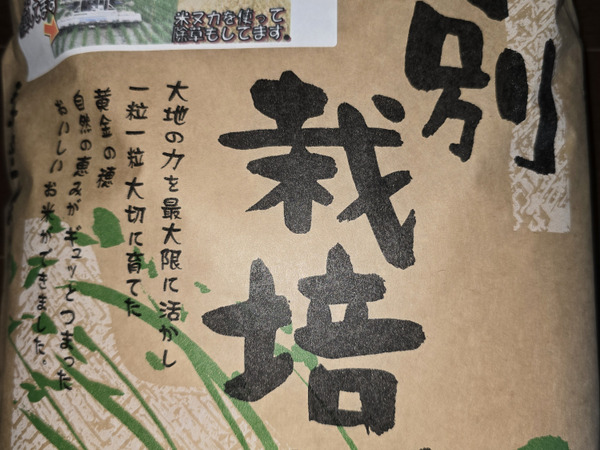 別
栽培
大地の力を最大限に活かし
一粒一粒大切に育てた
黄金の穂
自然の恵みがギュッとつまった
おいしいお米ができました。
米ヌカを使って
除草もしてます。